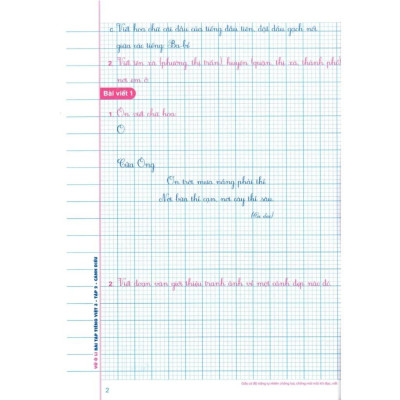 c. Viết hoa chữ cái đầu của tiếng đầu tiên, đặt dấu gạch nối
giữa các tiếng: Ba bể
2. Viết tên xã (phường, thị trấn), huyện (quận, thị xã, thành phố)
nơi em ở.
Bài viết 1
1. Ôn viết chữ hoa:
O
Cửa Ông
Ơn trời mưa nắng phải thì
Nơi bừa thì cạn, nơi cày thì sâu.
(Ca dao)
2. Viết đoạn văn giới thiệu tranh, ảnh về một cảnh đẹp nào đó.
VỞ Ô LI BÀI TẬP TIẾNG VIỆT 3 - TẬP 2 - CÁNH DIỀU
2